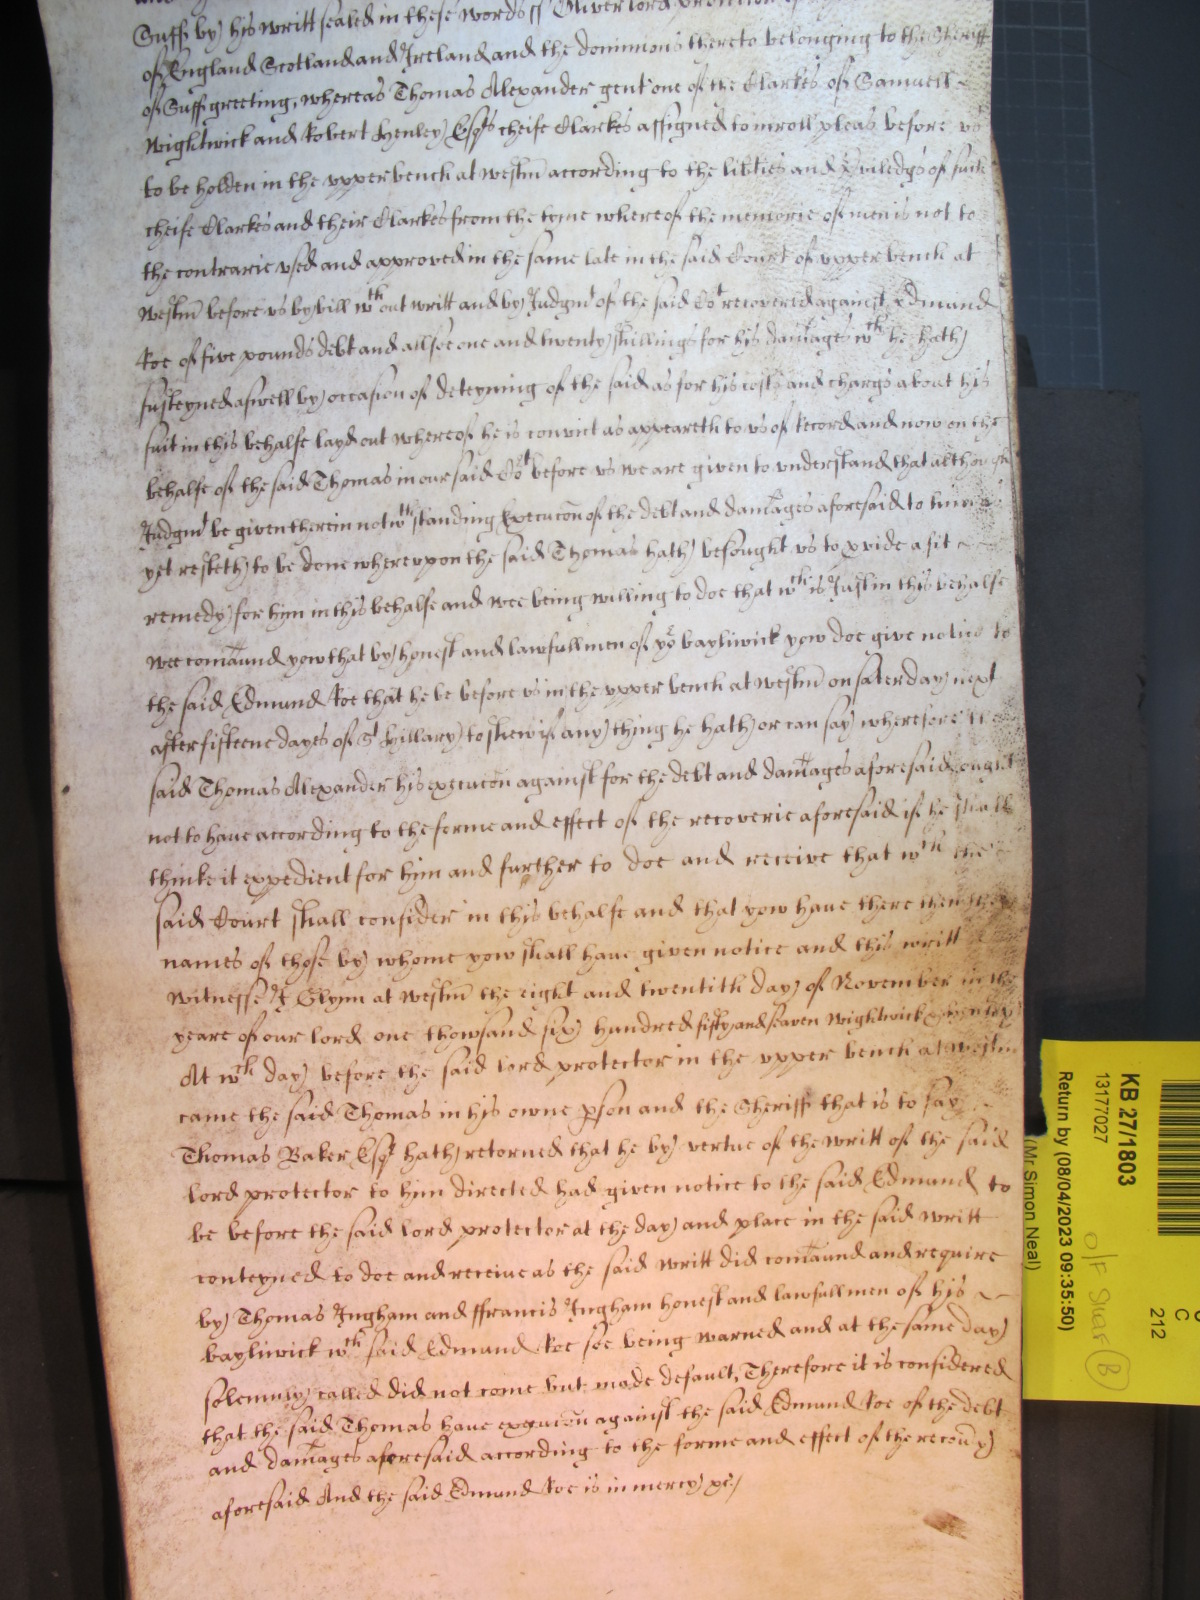 Suff by his writt sealed in these words ss Oliver lord protector
of England Scotland and Ireland and the dominions thereto belonging to the Sheriff
of Suff greeting, whereas Thomas Alexander gent one of the Clarkes of Samuell
Wightwick and Robert Henley Esqrs cheife Clarkes assigned to inroll pleas before us
to be holden in the upper bench at Westm according to the libties and Priviledgs of such
cheife Clarkes and their Clarkes from the tyme whereof the memorie of men is not to
the contrarie used and approved in the same late in the said Court of upper bench at
Westm before us by bill wthout writt and by Judgmt of the said Cot recovered against Edmund
Roe of five pounds debt and allsoe one and twenty shillings for his damages wch he hath
susteyned aswell by occasion of deteyning of the said as for his costs and chargs about his
suit in this behalfe layd out whereof he is convict as appeareth to us of Record and now on the
behalfe of the said Thomas in our said Cot before us we are given to understand that although
Judgmt be given therein notwthstanding Execucon of the debt and damages aforesaid to him
yet resteth to be done whereupon the said Thomas hath besought us to pvide a fit
remedy for him in this behalfe and wee being willing to doe that wch is Just in this behalfe
wee comaund yow that by honest and lawfull men of yor bayliwick yow doe give notice to
the said Edmund Roe that he be before us in the upper bench at Westm on Saterday next
after fifteene dayes of St Hillary to shew if any thing he hath or can say wherefore the
said Thomas Alexander his execucon against for the debt and damages aforesaid ought
not to have according to the forme and effect of the recoverie aforesaid if he shall
thinke it expedient for him and further to doe and receive that wch the
said Court shall consider in this behalfe and that yow have there then the
names of those by whome yow shall have given notice and this writt
Witnesse J Glynn at Westm the eight and twentith day of November in the
yeare of our lord one thowsand six hundred fifty and seaven Wightwick & Henley
At wch day before the said lord protector in the upper bench at Westm
came the said Thomas in his owne pson and the Sheriff that is to say
Thomas Baker Esqr hath retorned that he by vertue of the writt of the said
lord protector to him directed had given notice to the said Edmund to
be before the said lord protector at the day and place in the said writt
conteyned to doe and receive as the said writt did comaund and require
by Thomas Ingham and ffrancis Ingham honest and lawfull men of his
bayliwick wch said Edmund Roe soe being warned and at the same day
solemnly called did not come but made default, Therefore it is considered
that the said Thomas have execucon against the said Edmund Roe of the debt
and damages aforesaid according to the forme and effect of the recovy
aforesaid And the said Edmund Roe is in mercy &c
KB 27/1803
13177027
Return by (08/04/2023 09:35:50)
(Mr Simon Neal)
C
212